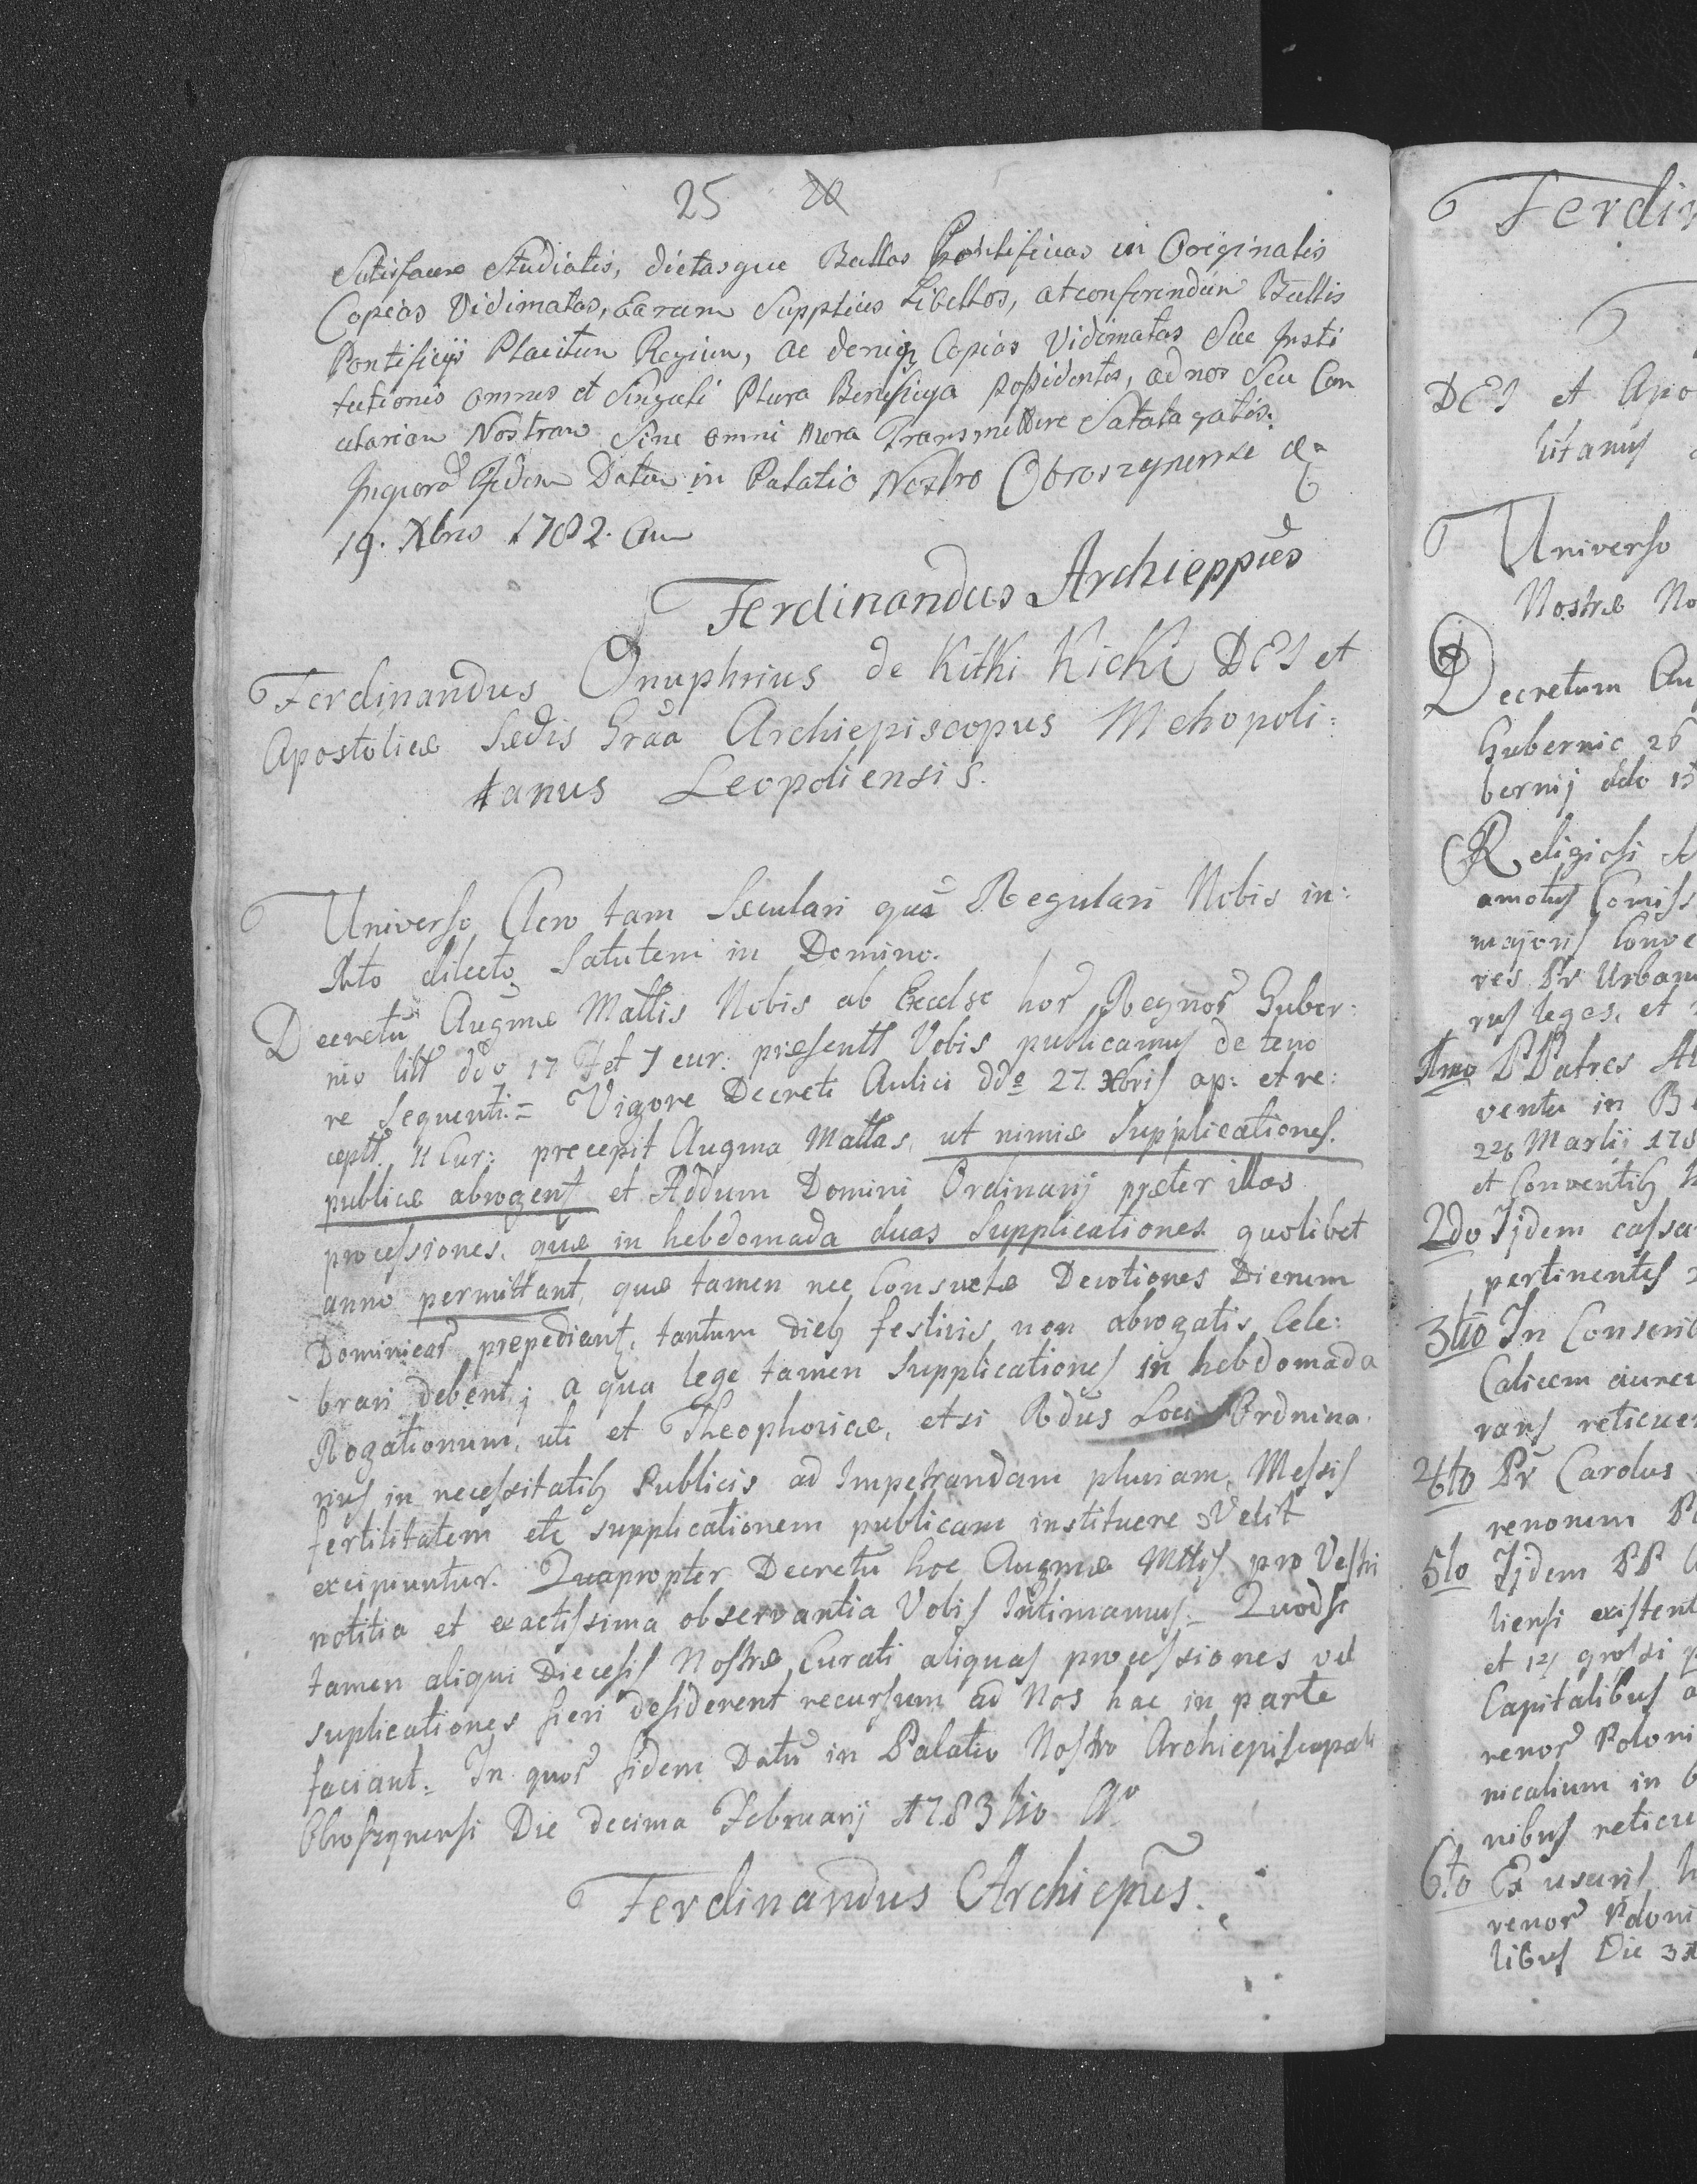 25 20
Satisfacere Studiatis, dictasque Bullas Pontificias in Originalis
Copias Vidimatas, earum Supplices Libellos, at conferendum Bullis
Pontificijs Placitum Regium, ac deniq Copias Vidimatas Suae Insti
tutionis omnes et Singuli Plura Beneficia possidentes, ad nos Seu Can
celariam Nostram Sine omni mora Transmittere Satatagatis.
In quorū Fidem Datum in Palatio Nostro Obroszynense
19. Xbris 1782. Ann
Ferdinandus Archieppus
Ferdinandus Onuphrius de Kitki Kicki DEI et
Apostolicæ Sædis Graa Archiepiscopus Metropoli:
tanus Leopoliensis.
Universo Clero tam Sæculari quā Regulari Nobis in:
Xto dilecto Salutem in Domino.
Decretū Augmæ Mattis Nobis ab Excelso hor Regnor Guber:
nio litt ddo 17 et 7 cur: præsentt Vobis publicamus de teno
re sequenti = Vigore Decreti Aulici ddo 27 Xbris ap: et re:
ceptt. 11 Cur: precepit Augma Mattas, ut nimiæ Supplicationes.
publicæ abrogent et Rddum Domini Ordinarij præter illas
processiones, quæ in hebdomada duas Supplicationes quolibet
anno permittant, quæ tamen nec Consuetæ Devotiones Dierum
Dominicar prepediant, tantum dieb festivis non abrogatis Cele:
brari debent; a qua lege tamen Supplicationes in hebdomada
Rogationum, uti et Theophoricæ, etsi Rdus Loci Ordnina
rius in necessitatib Publicis ad Impetrandam pluviam, Messis
fertilitatem etc supplicationem publicam instituere Velit
excipiuntur. Quapropter Decretū hoc Augmæ Mttis pro Vestri
notitia et exactissima observantia Vobis Intimamus. Quodsi
tamen aliqui Diecesis Nostræ Curati aliquas processiones vel
suplicationes fieri desiderent recursum ad Nos hac in parte
faciant. In quor fidem Datū in Palatio Nostro Archiepiscopali
Obroszynensi Die decima Februarij 1783tio Ao
Ferdinandus Archiepus.
Ferdin
DEI et Apo
litanus
Universo
Nostræ No
Decretum Au
Gubernio 26
bernij ddo 15
Religiosi
amotus Comiss
majoris Conve
res Pr Urban
rus leges, et
1mo PPatres
ventu in Be
226 Martij 178
et Conventib
2do Ijdem cassa
pertinentes
3tio In Conscrib
Calicem aureu
rans reticue
4to Pr Carolus
renorum
5to Ijdem PP
liensi existent
et 12 grossi
Capitalibus
renor Poloni
nicalium in
nibus reticu
6to Ex usuris
renor Poloni
libus Die 3